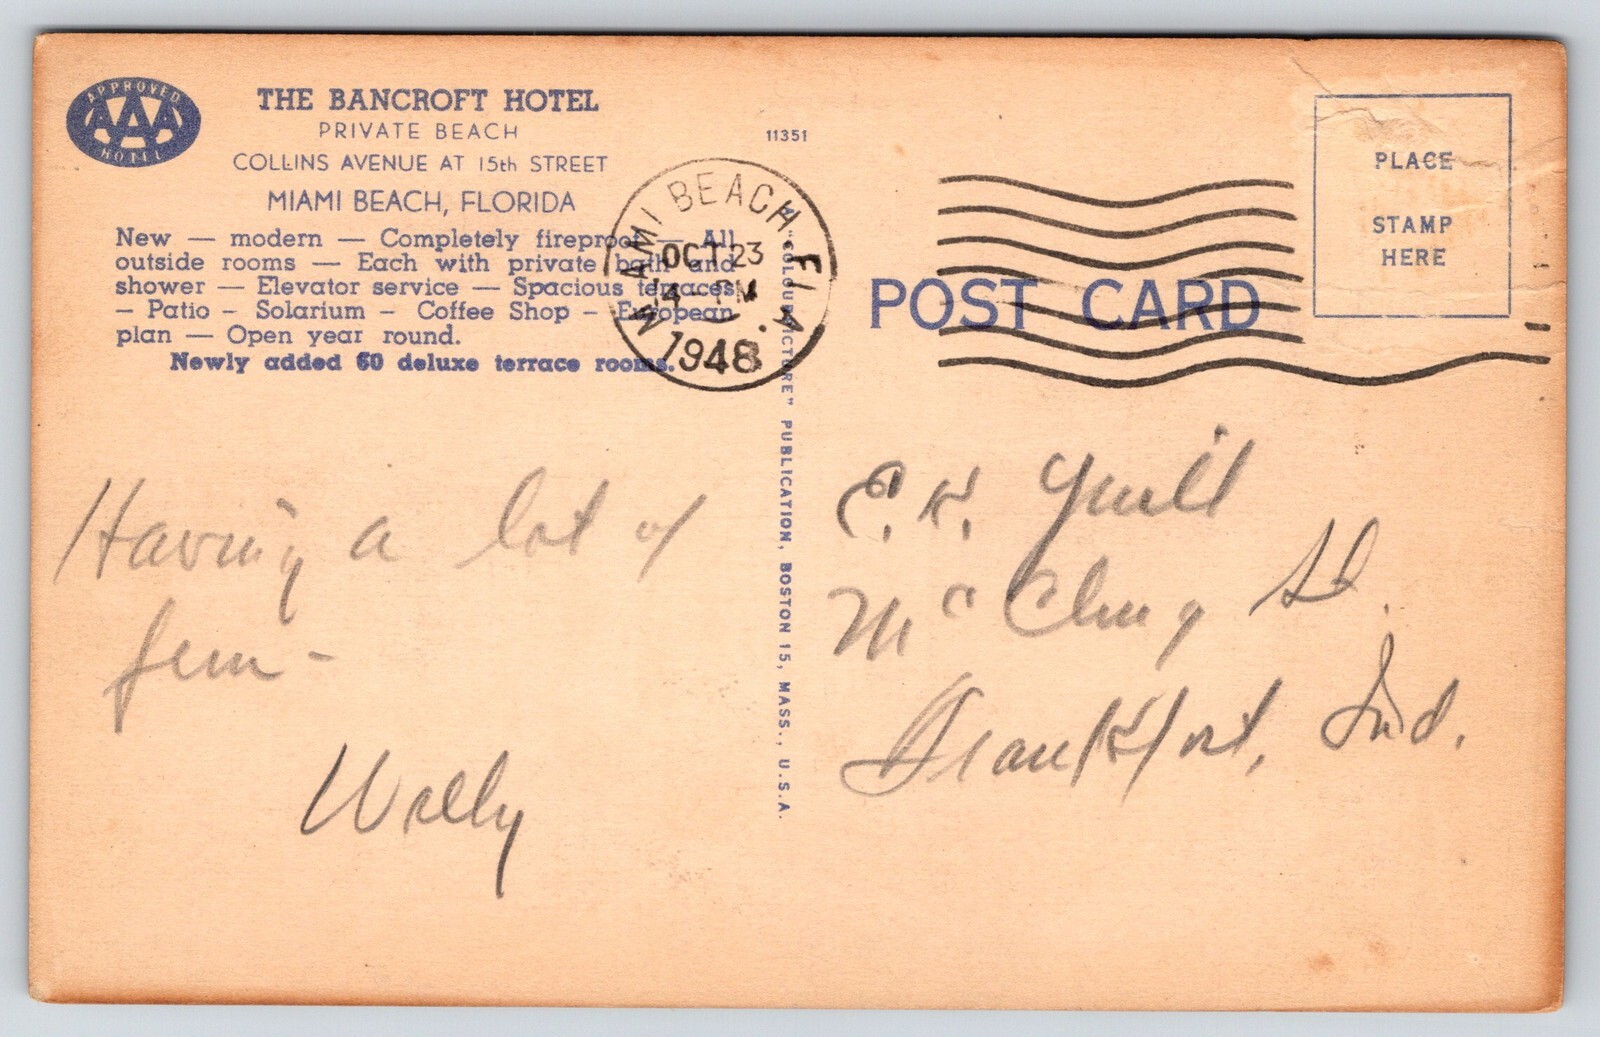 APPROVED
AAA
HOTEL
THE BANCROFT HOTEL
PRIVATE BEACH
COLLINS AVENUE AT 15th STREET
MIAMI BEACH, FLORIDA
New — modern — Completely fireproof — All
outside rooms — Each with private bath and
shower — Elevator service — Spacious terraces
– Patio – Solarium – Coffee Shop – European
plan — Open year round.
Newly added 60 deluxe terrace rooms.
11351
MIAMI BEACH, FLA.
OCT 23
4 - PM
1948
A "COLOURPICTURE" PUBLICATION, BOSTON 15, MASS., U.S.A.
POST CARD
PLACE
STAMP
HERE
Having a lot of
fun -
Wally
E. K.
McClung St.
Frankfort, Ind.